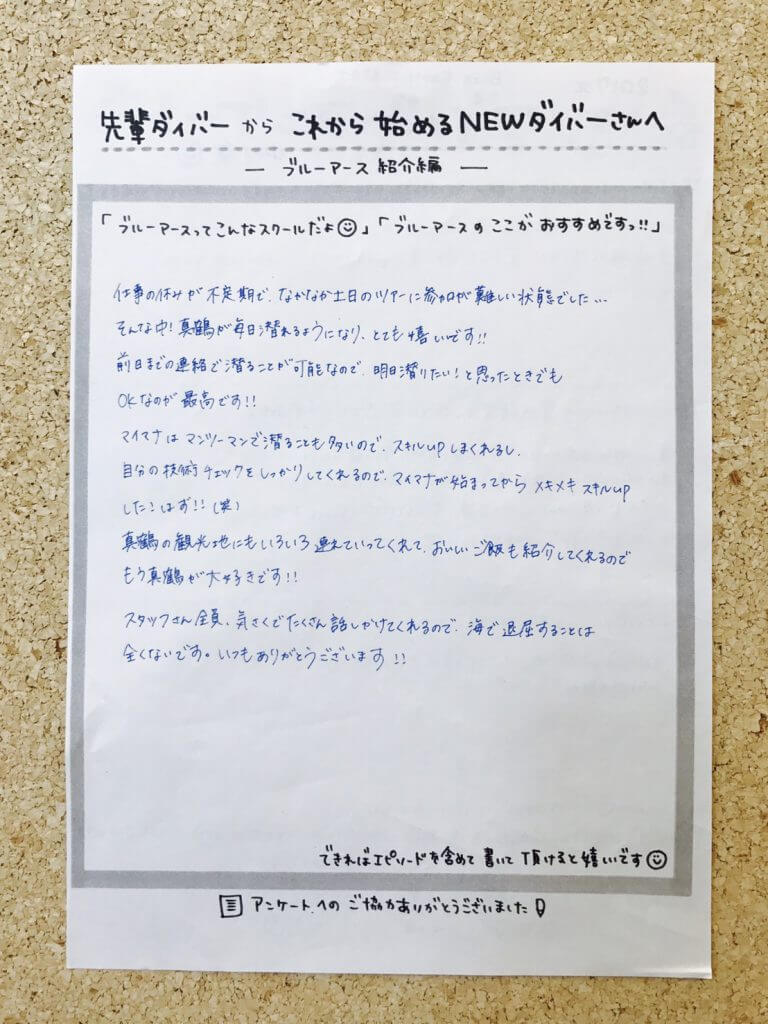 先輩ダイバーから これから 始めるNEWダイバーさんへ
― ブルーアース 紹介編 ―
「ブルーアースってこんなスクールだよ☺」「ブルーアースの ここが おすすめですっ!!」
仕事の休みが 不定期で、なかなか土日のツアーに参加が難しい状態でした…
そんな中!真鶴が毎日潜れるようになり、とても嬉しいです!!
前日までの連絡で潜ることが可能なので、明日潜りたい!と思ったときでも
OKなのが最高です!!
マイマナは マンツーマンで潜ることも多いので、スキルupしまくれるし、
自分の技術チェックをしっかりしてくれるので、マイマナが始まってから メキメキ スキルup
した!はず!!(笑)
真鶴の観光地にもいろいろ連れていってくれて、おいしいご飯も紹介してくれるので
もう真鶴が大好きです!!
スタッフさん全員、気さくでたくさん話しかけてくれるので、海で退屈することは
全くないです。いつもありがとうございます!!
できればエピソードを含めて 書いて 頂けると嬉しいです☺
アンケートへの ご協力ありがとうございました